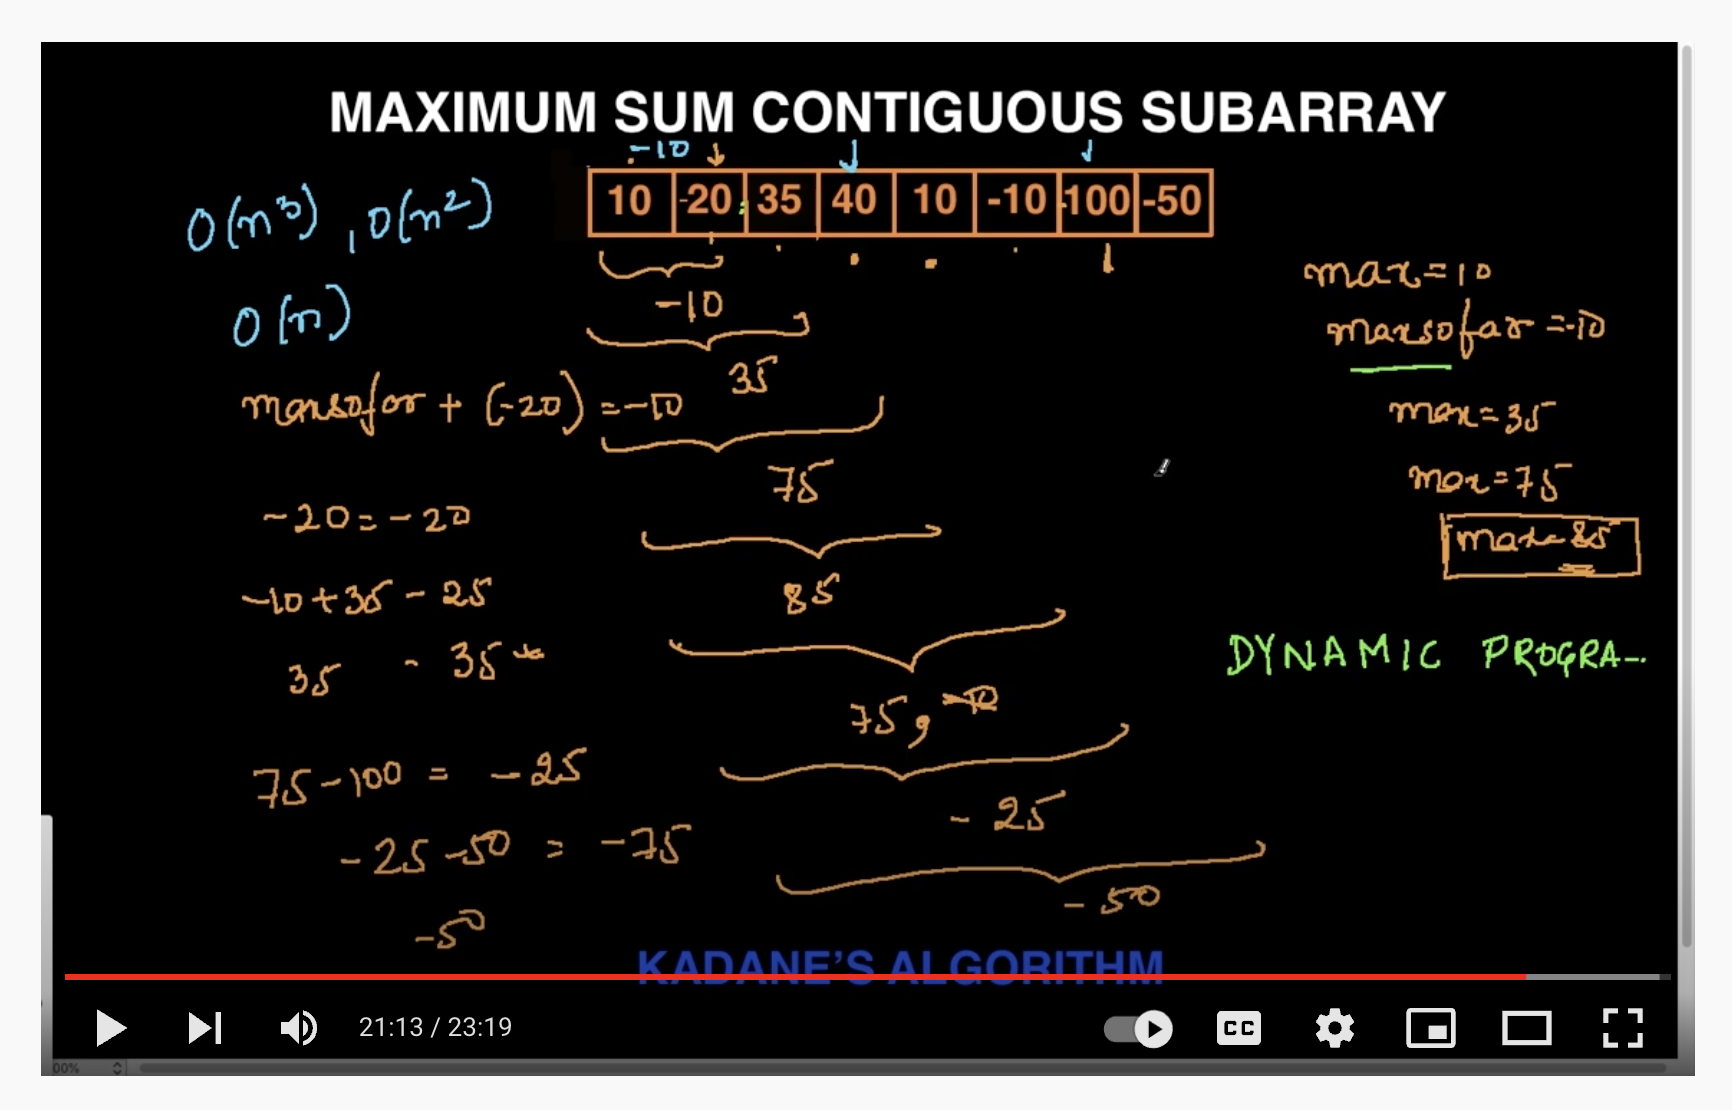 MAXIMUM SUM CONTIGUOUS SUBARRAY
-10
10 -20 35 40 10 -10 -100 -50
O(n³), O(n²)
O(n)
-10
35
maxsofar + (-20) = -10
75
-20 = -20
85
-10+35 - 25
35 - 35
75,
75-100 = -25
-25
-25 -50 = -75
-50
-50
max=10
maxsofar =-10
max=35
max=75
max=85
DYNAMIC PROGRA-..
KADANE'S ALGORITHM
21:13 / 23:19
CC
00%